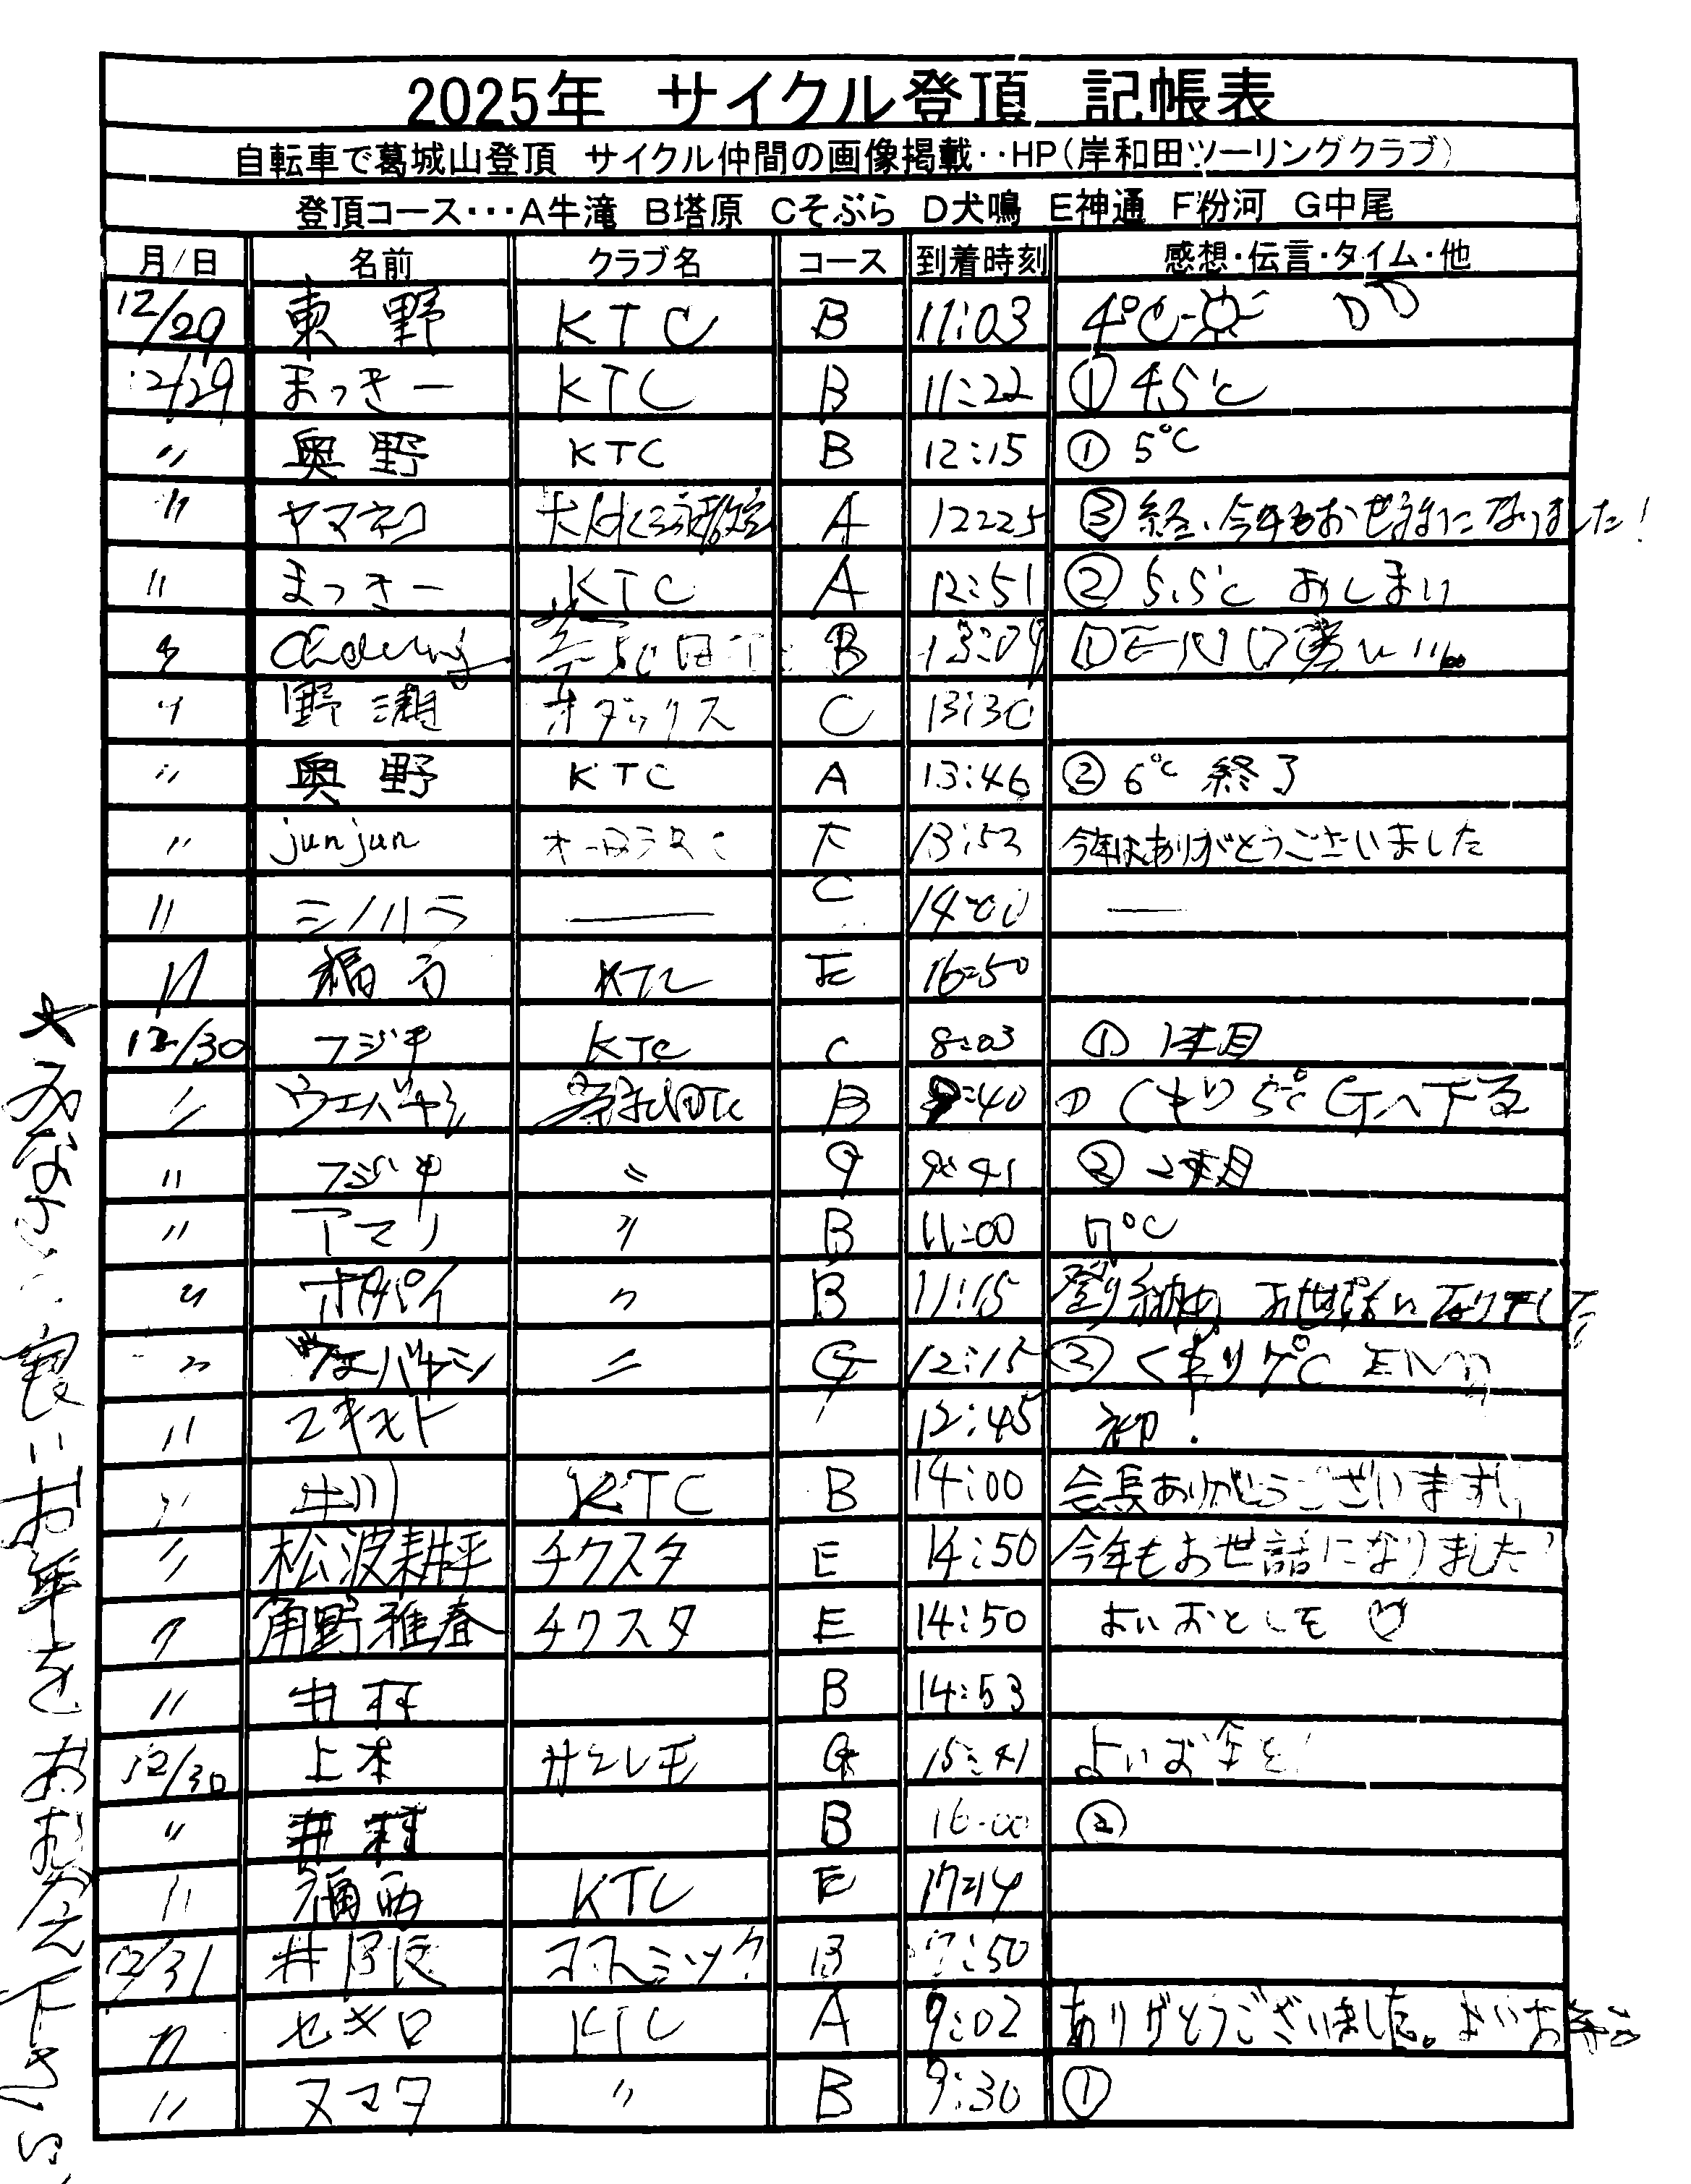 2025年 サイクル登頂 記帳表
自転車で葛城山登頂 サイクル仲間の画像掲載‥HP(岸和田ツーリングクラブ)
登頂コース･･･A牛滝 B塔原 Cそぶら D犬鳴 E神通 F粉河 G中尾
月/日 名前 クラブ名 コース 到着時刻 感想・伝言・タイム・他
12/29 東野 KTC B 11:03 4℃
12/29 まっきー KTC B 11:22 ① 4.5℃
〃 奥野 KTC B 12:15 ① 5℃
〃 ヤマネコ A 12:25 ③ 終、今年もお世話になりました!
〃 まっきー KTC A 12:51 ② 5.5℃ おしまい
〃 B 13:09 ①
〃 野瀬 オダックス C 13:30
〃 奥野 KTC A 13:46 ② 6℃ 終了
〃 junjun F 13:53 今年はありがとうございました
〃 シノハラ ― C 14:00 ―
〃 KTC E 16:50
12/30 フジキ KTC C 8:03 ① 1本目
〃 ウエバヤシ B :40 ① くもり 5℃ Gへ下る
〃 フジキ 〃 G 9:41 ② 2本目
〃 アマリ 〃 B 11:00 7℃
〃 ポパイ 〃 B 11:15 登り納め お世話になりました
〃 ウエバヤシ 〃 G 12:15 ② くもり 7℃
〃 12:45 初!
〃 井川 KTC B 14:00 会長ありがとうございます!
〃 松波耕平 チクスタ E 14:50 今年もお世話になりました!
〃 角野雅春 チクスタ E 14:50 よいおとしを ♡
〃 井村 B 14:53
12/30 上本 サンレモ G 15:41 よいお年を!
〃 井村 B 16:00 ②
〃 KTC E 17:14
12/31 井阪 コスミック B 7:50
〃 セキロ KTC A 9:02 ありがとうございました。よいお年を
〃 ヌマタ 〃 B 9:30 ①
みなさん 良いお年をおむかえ下さい